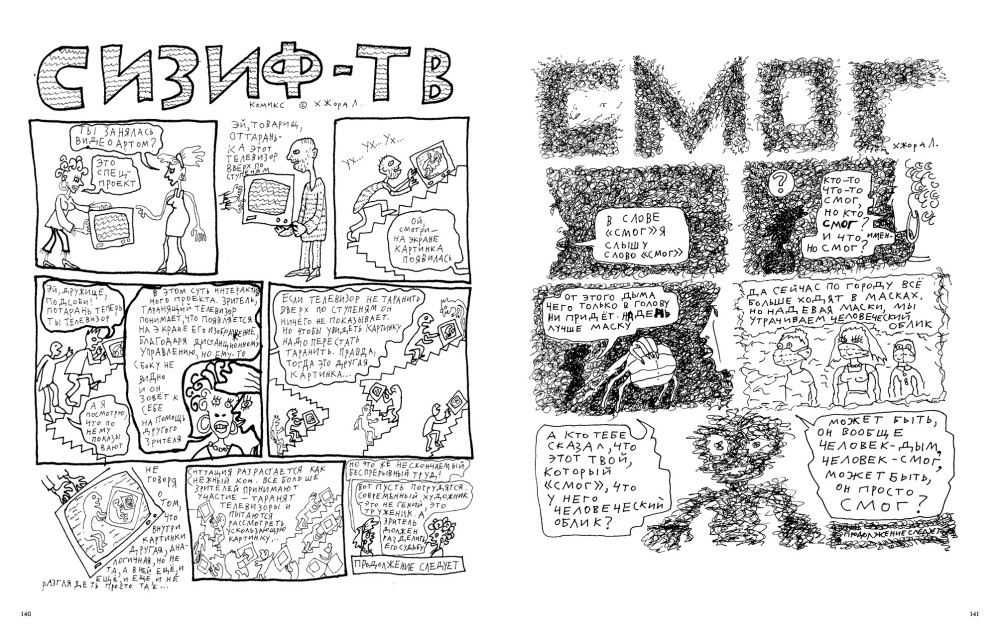 СИЗИФ-ТВ
КОМИКС © ХЖОРА Л.
ТЫ ЗАНЯЛАСЬ
ВИДЕОАРТОМ?
ЭТО
СПЕЦ-
ПРОЕКТ
ЭЙ, ТОВАРИЩ,
ОТТАРАНЬ-
КА ЭТОТ
ТЕЛЕВИЗОР
ВВЕРХ ПО
СТУПЕНЯМ
УХ... УХ... УХ...
ОЙ,
СМОТРИ-
НА ЭКРАНЕ
КАРТИНКА
ПОЯВИЛАСЬ
ЭЙ, ДРУЖИЩЕ,
ПОДСОБИ!
ПОТАРАНЬ ТЕПЕРЬ
ТЫ ТЕЛЕВИЗОР
А Я
ПОСМОТРЮ,
ЧТО ПО
НЕМУ
ПОКАЗЫ
ВАЮТ
В ЭТОМ СУТЬ ИНТЕРАКТИВ
НОГО ПРОЕКТА. ЗРИТЕЛЬ,
ТАРАНЯЩИЙ ТЕЛЕВИЗОР
ПОНИМАЕТ, ЧТО ПОЯВЛЯЕТСЯ
НА ЭКРАНЕ ЕГО ИЗОБРАЖЕНИЕ,
БЛАГОДАРЯ ДИСТАНЦИОННОМУ
УПРАВЛЕНИЮ, НО ЕМУ-ТО
СБОКУ НЕ
ВИДНО
И ОН
ЗОВЁТ К
СЕБЕ
НА ПОМОЩЬ
ДРУГОГО
ЗРИТЕЛЯ
ЕСЛИ ТЕЛЕВИЗОР НЕ ТАРАНИТЬ
ВВЕРХ ПО СТУПЕНЯМ ОН
НИЧЕГО НЕ ПОКАЗЫВАЕТ.
НО ЧТОБЫ УВИДЕТЬ КАРТИНКУ
НАДО ПЕРЕСТАТЬ
ТАРАНИТЬ. ПРАВДА,
ТОГДА ЭТО ДРУГАЯ
КАРТИНКА...
НЕ
ГОВОРЯ
О
ТОМ,
ЧТО
ВНУТРИ
КАРТИНКИ
ДРУГАЯ, АНА-
ЛОГИЧНАЯ, НО НЕ
ТА, А В НЕЙ ЕЩЁ, И
ЕЩЁ, И ЕЩЁ, И НЕ
РАЗГЛЯДЕТЬ ПРОСТО ТАК...
СИТУАЦИЯ РАЗРАСТАЕТСЯ КАК
СНЕЖНЫЙ КОМ. ВСЕ БОЛЬШЕ
ЗРИТЕЛЕЙ ПРИНИМАЮТ
УЧАСТИЕ - ТАРАНЯТ
ТЕЛЕВИЗОРЫ И
ПЫТАЮТСЯ
РАССМОТРЕТЬ
УСКОЛЬЗАЮЩУЮ
КАРТИНКУ...
НО ЭТО ЖЕ НЕСКОНЧАЕМЫЙ,
БЕСПРЕРЫВНЫЙ ТРУД!
ВОТ ПУСТЬ ПОТРУДЯТСЯ.
СОВРЕМЕННЫЙ ХУДОЖНИК
ЭТО НЕ ГЕНИЙ, ЭТО
ТРУЖЕНИК. А
ЗРИТЕЛЬ
ДОЛЖЕН
РАЗДЕЛИТЬ
ЕГО СУДЬБУ
ПРОДОЛЖЕНИЕ СЛЕДУЕТ
140
СМОГ
ХЖОРА Л.
В СЛОВЕ
«СМОГ» Я
СЛЫШУ
СЛОВО «СМОГ»
?
КТО-ТО
ЧТО-ТО
СМОГ,
НО КТО
СМОГ?
И ЧТО ИМЕН-
НО СМОГ?
ОТ ЭТОГО ДЫМА
ЧЕГО ТОЛЬКО В ГОЛОВУ
НИ ПРИДЁТ. НАДЕНЬ
ЛУЧШЕ МАСКУ
ДА СЕЙЧАС ПО ГОРОДУ ВСЁ
БОЛЬШЕ ХОДЯТ В МАСКАХ,
НО НАДЕВАЯ МАСКИ МЫ
УТРАЧИВАЕМ ЧЕЛОВЕЧЕСКИЙ
ОБЛИК
А КТО ТЕБЕ
СКАЗАЛ, ЧТО
ЭТОТ ТВОЙ,
КОТОРЫЙ
«СМОГ», ЧТО
У НЕГО
ЧЕЛОВЕЧЕСКИЙ
ОБЛИК?
МОЖЕТ БЫТЬ,
ОН ВООБЩЕ
ЧЕЛОВЕК-ДЫМ,
ЧЕЛОВЕК-СМОГ,
МОЖЕТ БЫТЬ,
ОН ПРОСТО
СМОГ?
ПРОДОЛЖЕНИЕ СЛЕДУЕТ
141